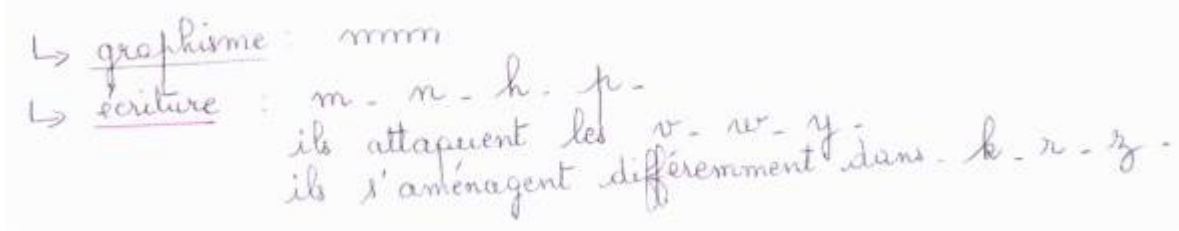 ↳ graphisme : mmm
↳ écriture : m - n - h - p -
ils attaquent les v - w - y -
ils s'aménagent différemment dans - k - r - z -